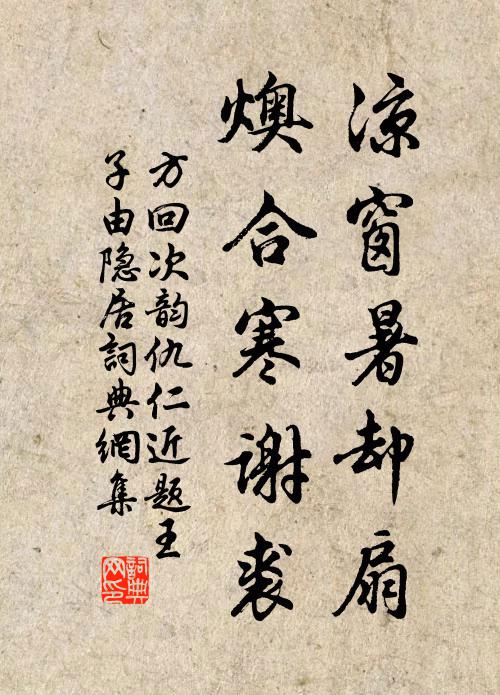 凉窗暑却扇
燠合寒谢裘
方回次韵仇仁近题王
子由隐居詞典網集
詞典
网印